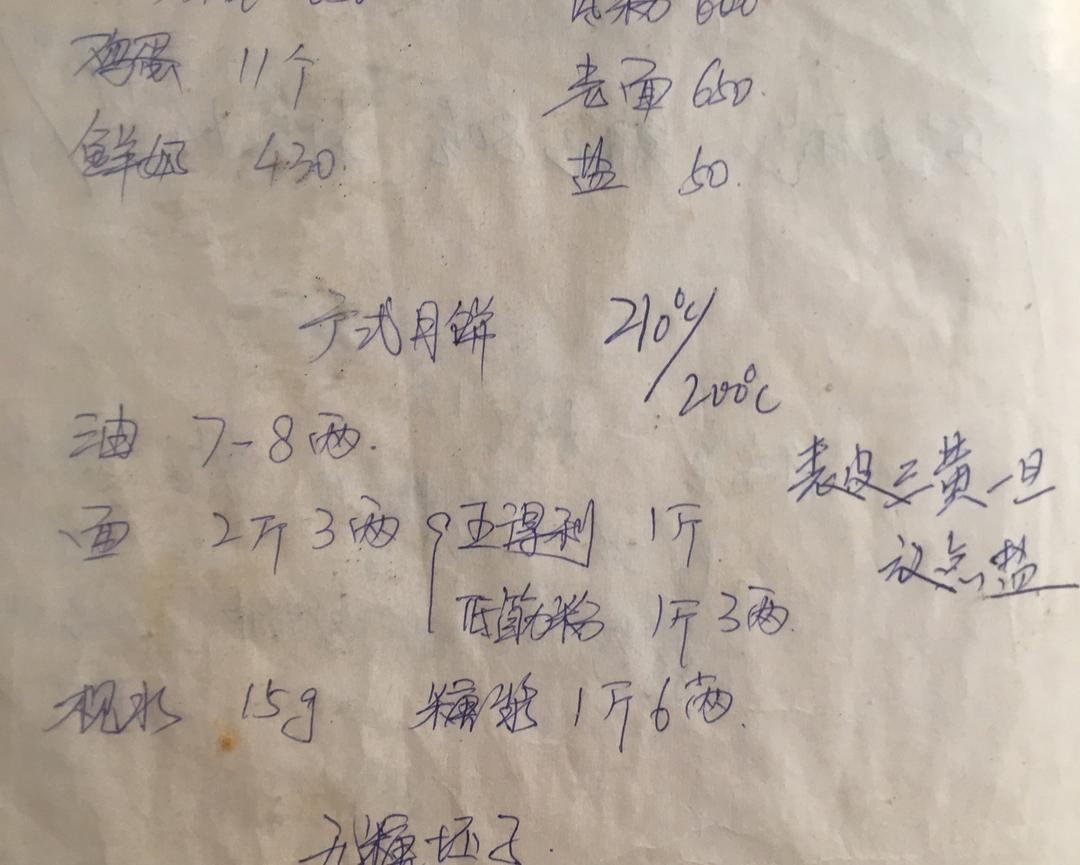 低粉 600
鸡蛋 11个
老面 650.
鲜奶 430.
盐 50.
广式月饼 210℃/200℃
油 7-8两.
表皮三黄一旦
放点盐
面 2斤3两 五得利 1斤
低筋粉 1斤3两.
枧水 15g 糖浆 1斤6两.
无糖坯子.